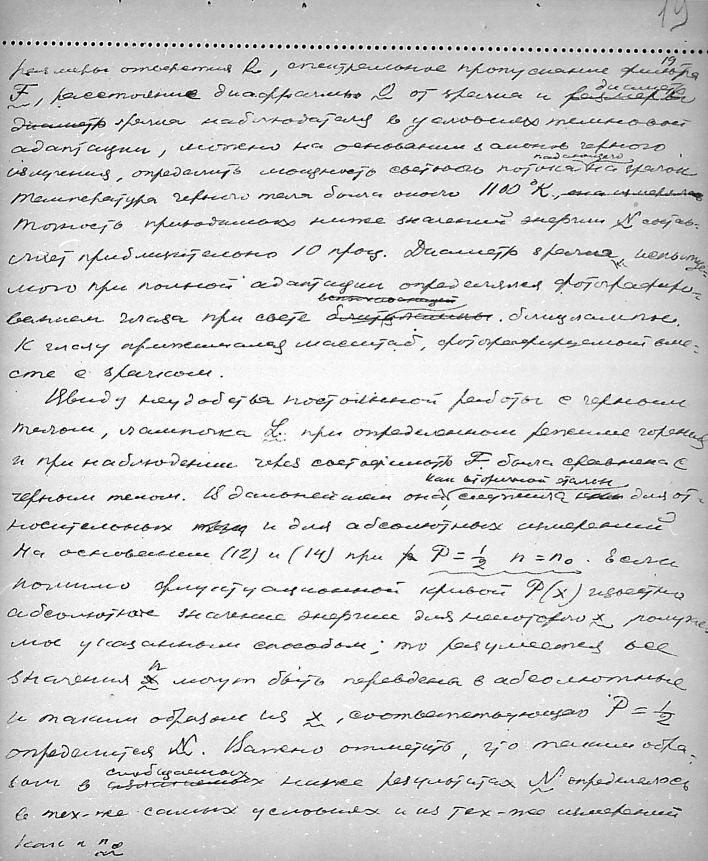 19
19
размеры отверстия R, спектральное пропускание фильтра
F, расстояние диафрагмы Q от зрачка и размеры диаметр
диаметр зрачка наблюдателя в условиях темновой
адаптации, можно на основании законов черного
излучения, определить мощность светового потока падающего на зрачок
Температура черного тела была около 1100 °K, она измерялась
Точность приводимых ниже значений энергии N состав-
ляет приблизительно 10 проц. Диаметр зрачка, испытуе-
мого при полной адаптации определялся фотографиро-
ванием глаза при свете вспыхивающей блицлампы.
К глазу прижимался масштаб, фотографируемый вме-
сте с зрачком.
Ввиду неудобства постоянной работы с черным
телом, лампочка L при определенном режиме горения
и при наблюдении через светофильтр F была сравнена с
черным телом. В дальнейшем она, как вторичный эталон служила для от-
носительных и для абсолютных измерений
На основании (12) и (14) при P = ½ n = n₀. Если
помимо флуктуационной кривой P(x) известно
абсолютное значение энергии для некоторого x, получае-
мое указанным способом; то разумеется все
значения n могут быть переведены в абсолютные
и таким образом из x, соответствующего P = ½
определится N. Важно отметить, что таким обра-
зом в сообщаемых ниже результатах N определялось
в тех-же самых условиях и из тех-же измерений
как и n₀